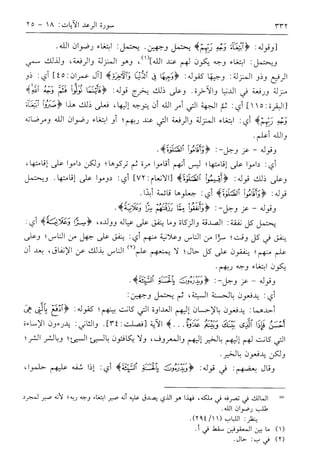 ٣٣٢
سورة الرعد الآيات: ١٨ - ٢٥
[وقوله: ﴿ٱبْتِغَآءَ وَجْهِ رَبِّهِمْ﴾ يحتمل وجهين. يحتمل: ابتغاء رضوان الله.
ويحتمل: ابتغاء وجه يكون لهم عند الله](١)، وهو المنزلة والرفعة، ولذلك سمي
الرفيع وذو المنزلة: وجيهًا كقوله: ﴿وَجِيهًا فِى ٱلدُّنْيَا وَٱلْـَٔاخِرَةِ﴾ [آل عمران: ٤٥] أي: ذو
منزلة ورفعة في الدنيا والآخرة. وعلى ذلك يخرج قوله: ﴿فَأَيْنَمَا تُوَلُّوا۟ فَثَمَّ وَجْهُ ٱللَّهِ﴾
[البقرة: ١١٥] أي: ثَمّ الجهة التي أمر الله أن يتوجه إليها، فعلى ذلك هذا ﴿ٱبْتِغَآءَ
وَجْهِ رَبِّهِمْ﴾ أي: ابتغاء المنزلة والرفعة التي عند ربهم؛ أو ابتغاء رضوان الله ومرضاته
والله أعلم.
وقوله - عز وجل-: ﴿وَأَقَامُوا۟ ٱلصَّلَوٰةَ﴾.
أي: داموا على إقامتها؛ ليس أنهم أقاموا مرة ثم تركوها؛ ولكن داموا على إقامتها،
وعلى ذلك قوله: ﴿أَقِيمُوا۟ ٱلصَّلَوٰةَ﴾ [الأنعام: ٧٢] أي: دوموا على إقامتها. ويحتمل
قوله: ﴿وَأَقَامُوا۟ ٱلصَّلَوٰةَ﴾ أي: جعلوها قائمة أبدًا.
وقوله - عز وجل -: ﴿وَأَنفَقُوا۟ مِمَّا رَزَقْنَٰهُمْ سِرًّا وَعَلَانِيَةً﴾.
يحتمل كل نفقة: الصدقة والزكاة وما ينفق على عياله وولده، ﴿سِرًّا وَعَلَانِيَةً﴾ أي:
ينفق في كل وقت؛ سرًّا من الناس وعلانية منهم أي: ينفق على جهل من الناس؛ وعلى
علم منهم؛ ينفقون على كل حال(٢) لا يمنعهم علم الناس بذلك عن الإنفاق، بعد أن
يكون ابتغاء وجه ربهم.
وقوله - عز وجل-: ﴿وَيَدْرَءُونَ بِٱلْحَسَنَةِ ٱلسَّيِّئَةَ﴾.
أي: يدفعون بالحسنة السيئة، ثم يحتمل وجهين:
أحدهما: يدفعون بالإحسان إليهم العداوة التي كانت بينهم؛ كقوله: ﴿ٱدْفَعْ بِٱلَّتِى هِىَ
أَحْسَنُ فَإِذَا ٱلَّذِى بَيْنَكَ وَبَيْنَهُۥ عَدَٰوَةٌ...﴾ الآية [فصلت: ٣٤]. والثاني: يدرءون الإساءة
التي كانت لهم إليهم بالخير إليهم والمعروف، ولا يكافئون بالسيئ السيئ؛ وبالشر الشر؛
ولكن يدفعون بالخير.
وقال بعضهم: في قوله: ﴿وَيَدْرَءُونَ بِٱلْحَسَنَةِ ٱلسَّيِّئَةَ﴾ أي: إذا سُفه عليهم حلموا،
= المالك في تصرفه في ملكه، فهذا هو الذي يصدق عليه أنه صبر ابتغاء وجه ربه؛ لأنه صبر لمجرد
طلب رضوان الله.
ينظر: اللباب (١١/٢٩٤).
(١) ما بين المعقوفين سقط في أ.
(٢) في ب: حال.